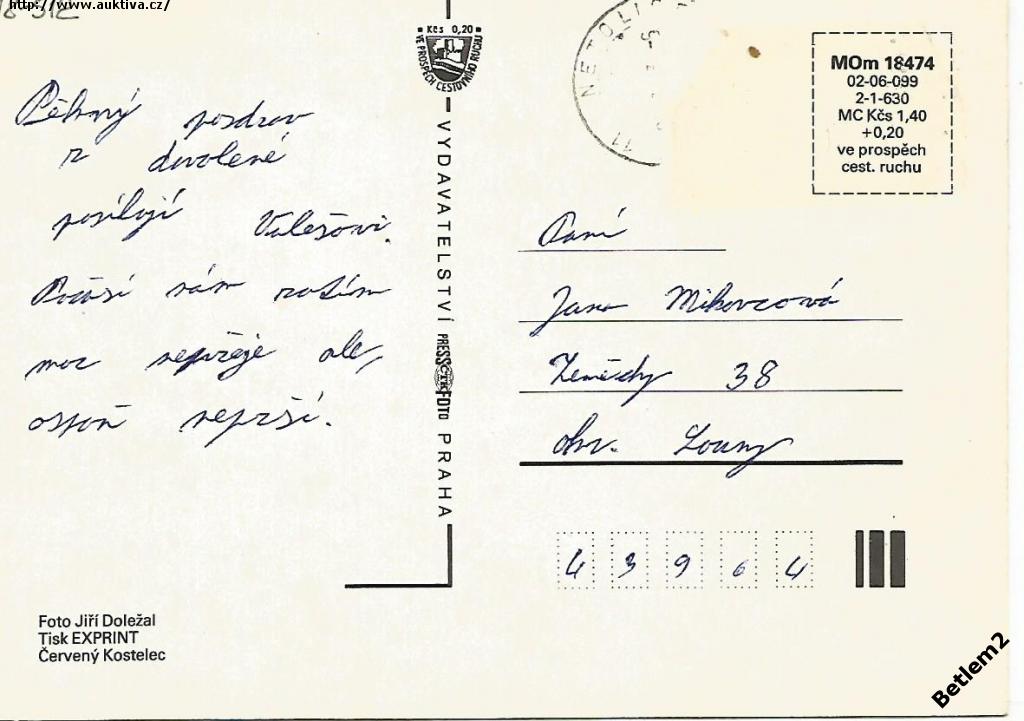 http://www.auktiva.cz/
Kčs 0,20
VE PROSPĚCH CESTOVNÍHO RUCHU
NETOLI
11
MOm 18474
02-06-099
2-1-630
MC Kčs 1,40
+0,20
ve prospěch
cest. ruchu
Pěkný pozdrav
z dovolené
posílají Valešovi.
Počasí nám zatím
moc nepřeje ale,
aspoň neprší.
VYDAVATELSTVÍ PRESSFOTO PRAHA
ČTK
Paní
Jana
38
okr. Louny
43964
Foto Jiří Doležal
Tisk EXPRINT
Červený Kostelec
Betlem2